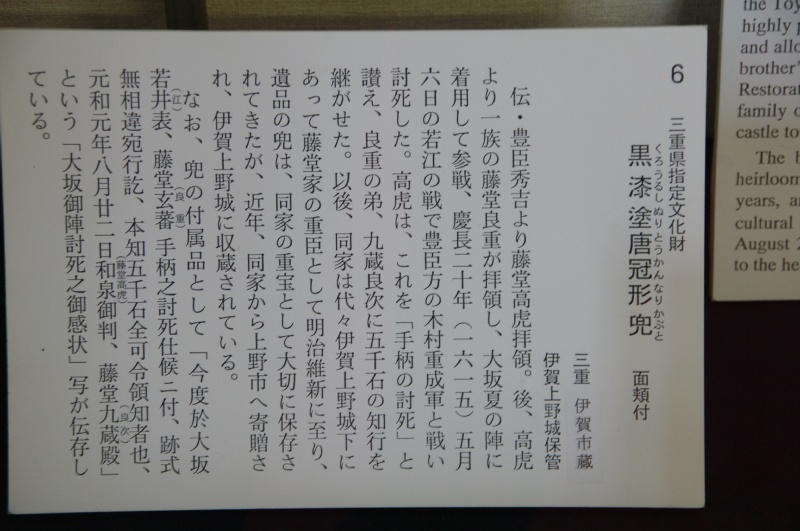 6 三重県指定文化財
黒漆塗唐冠形兜 面頬付
くろうるしぬりとうかんなりかぶと
三重 伊賀市蔵
伊賀上野城保管
伝・豊臣秀吉より藤堂高虎拝領。後、高虎
より一族の藤堂良重が拝領し、大坂夏の陣に
着用して参戦、慶長二十年（一六一五）五月
六日の若江の戦で豊臣方の木村重成軍と戦い
討死した。高虎は、これを「手柄の討死」と
讃え、良重の弟、九蔵良次に五千石の知行を
継がせた。以後、同家は代々伊賀上野城下に
あって藤堂家の重臣として明治維新に至り、
遺品の兜は、同家の重宝として大切に保存さ
れてきたが、近年、同家から上野市へ寄贈さ
れ、伊賀上野城に収蔵されている。
なお、兜の付属品として「今度於大坂
若井（江）表、藤堂玄蕃（良重）手柄之討死仕候ニ付、跡式
無相違宛行訖、本知五千石全可令領知者也、
元和元年八月廿二日和泉（藤堂高虎）御判、藤堂九蔵（良次）殿」
という「大坂御陣討死之御感状」写が伝存し
ている。
the Toy
highly p
and allo
brother's
Restorat
family o
castle to
The b
heirloom
years, a
cultural
August 2
to the he